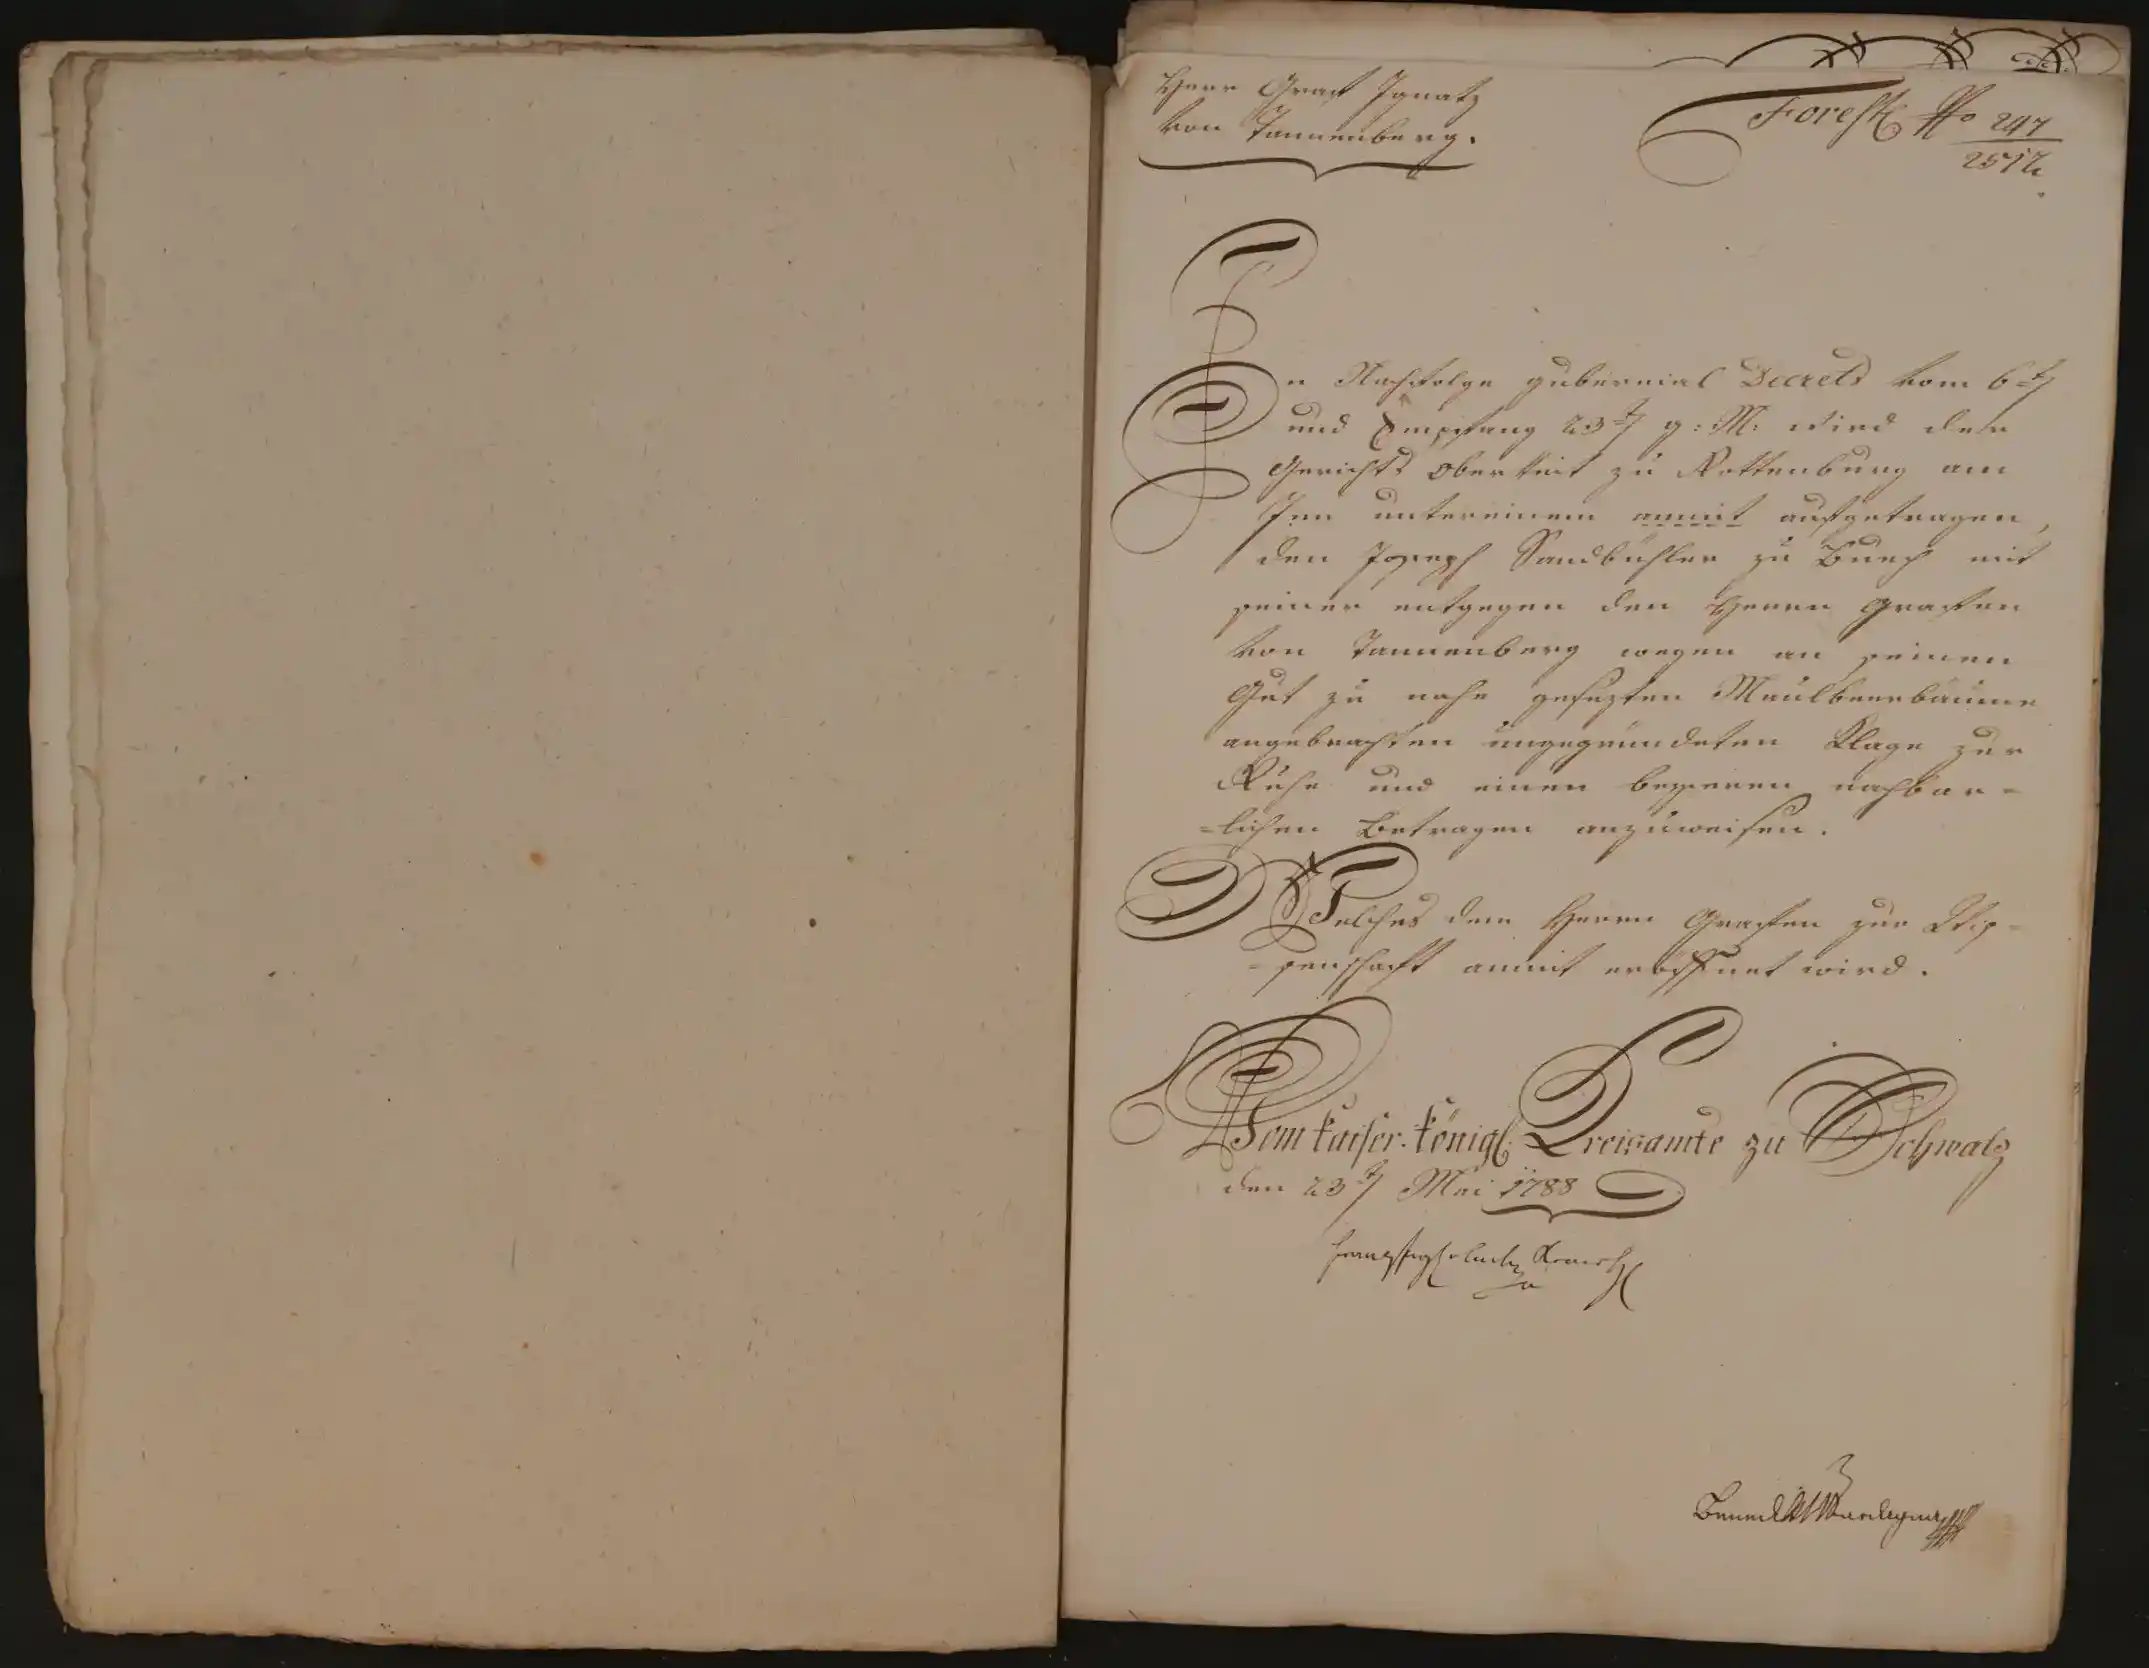 Herr Graf Ignatz
von Tannenberg.
Forest No 247
2517
In Nachfolge gubernial Decrets vom 6t
und Empfang 23t p: M: wird der
Gerichts Oberkeit zu Rottenburg am
Inn untereinem anmit aufgetragen,
den Joseph Sandbühler zu Buech mit
seiner entgegen den Herrn Grafen
von Tannenberg wegen an seinen
Gut zu nahe gesezten Maulbeerbäume
angebrachten ungegründeten Klage zur
Ruhe und einen besseren nachbar=
=lichen Betragen anzuweisen.
Welches dem Herrn Grafen zur Wis=
=senschaft anmit eröffnet wird.
Vom kaiser. königl. Kreisamte zu Schwatz
den 23t Mai 1788